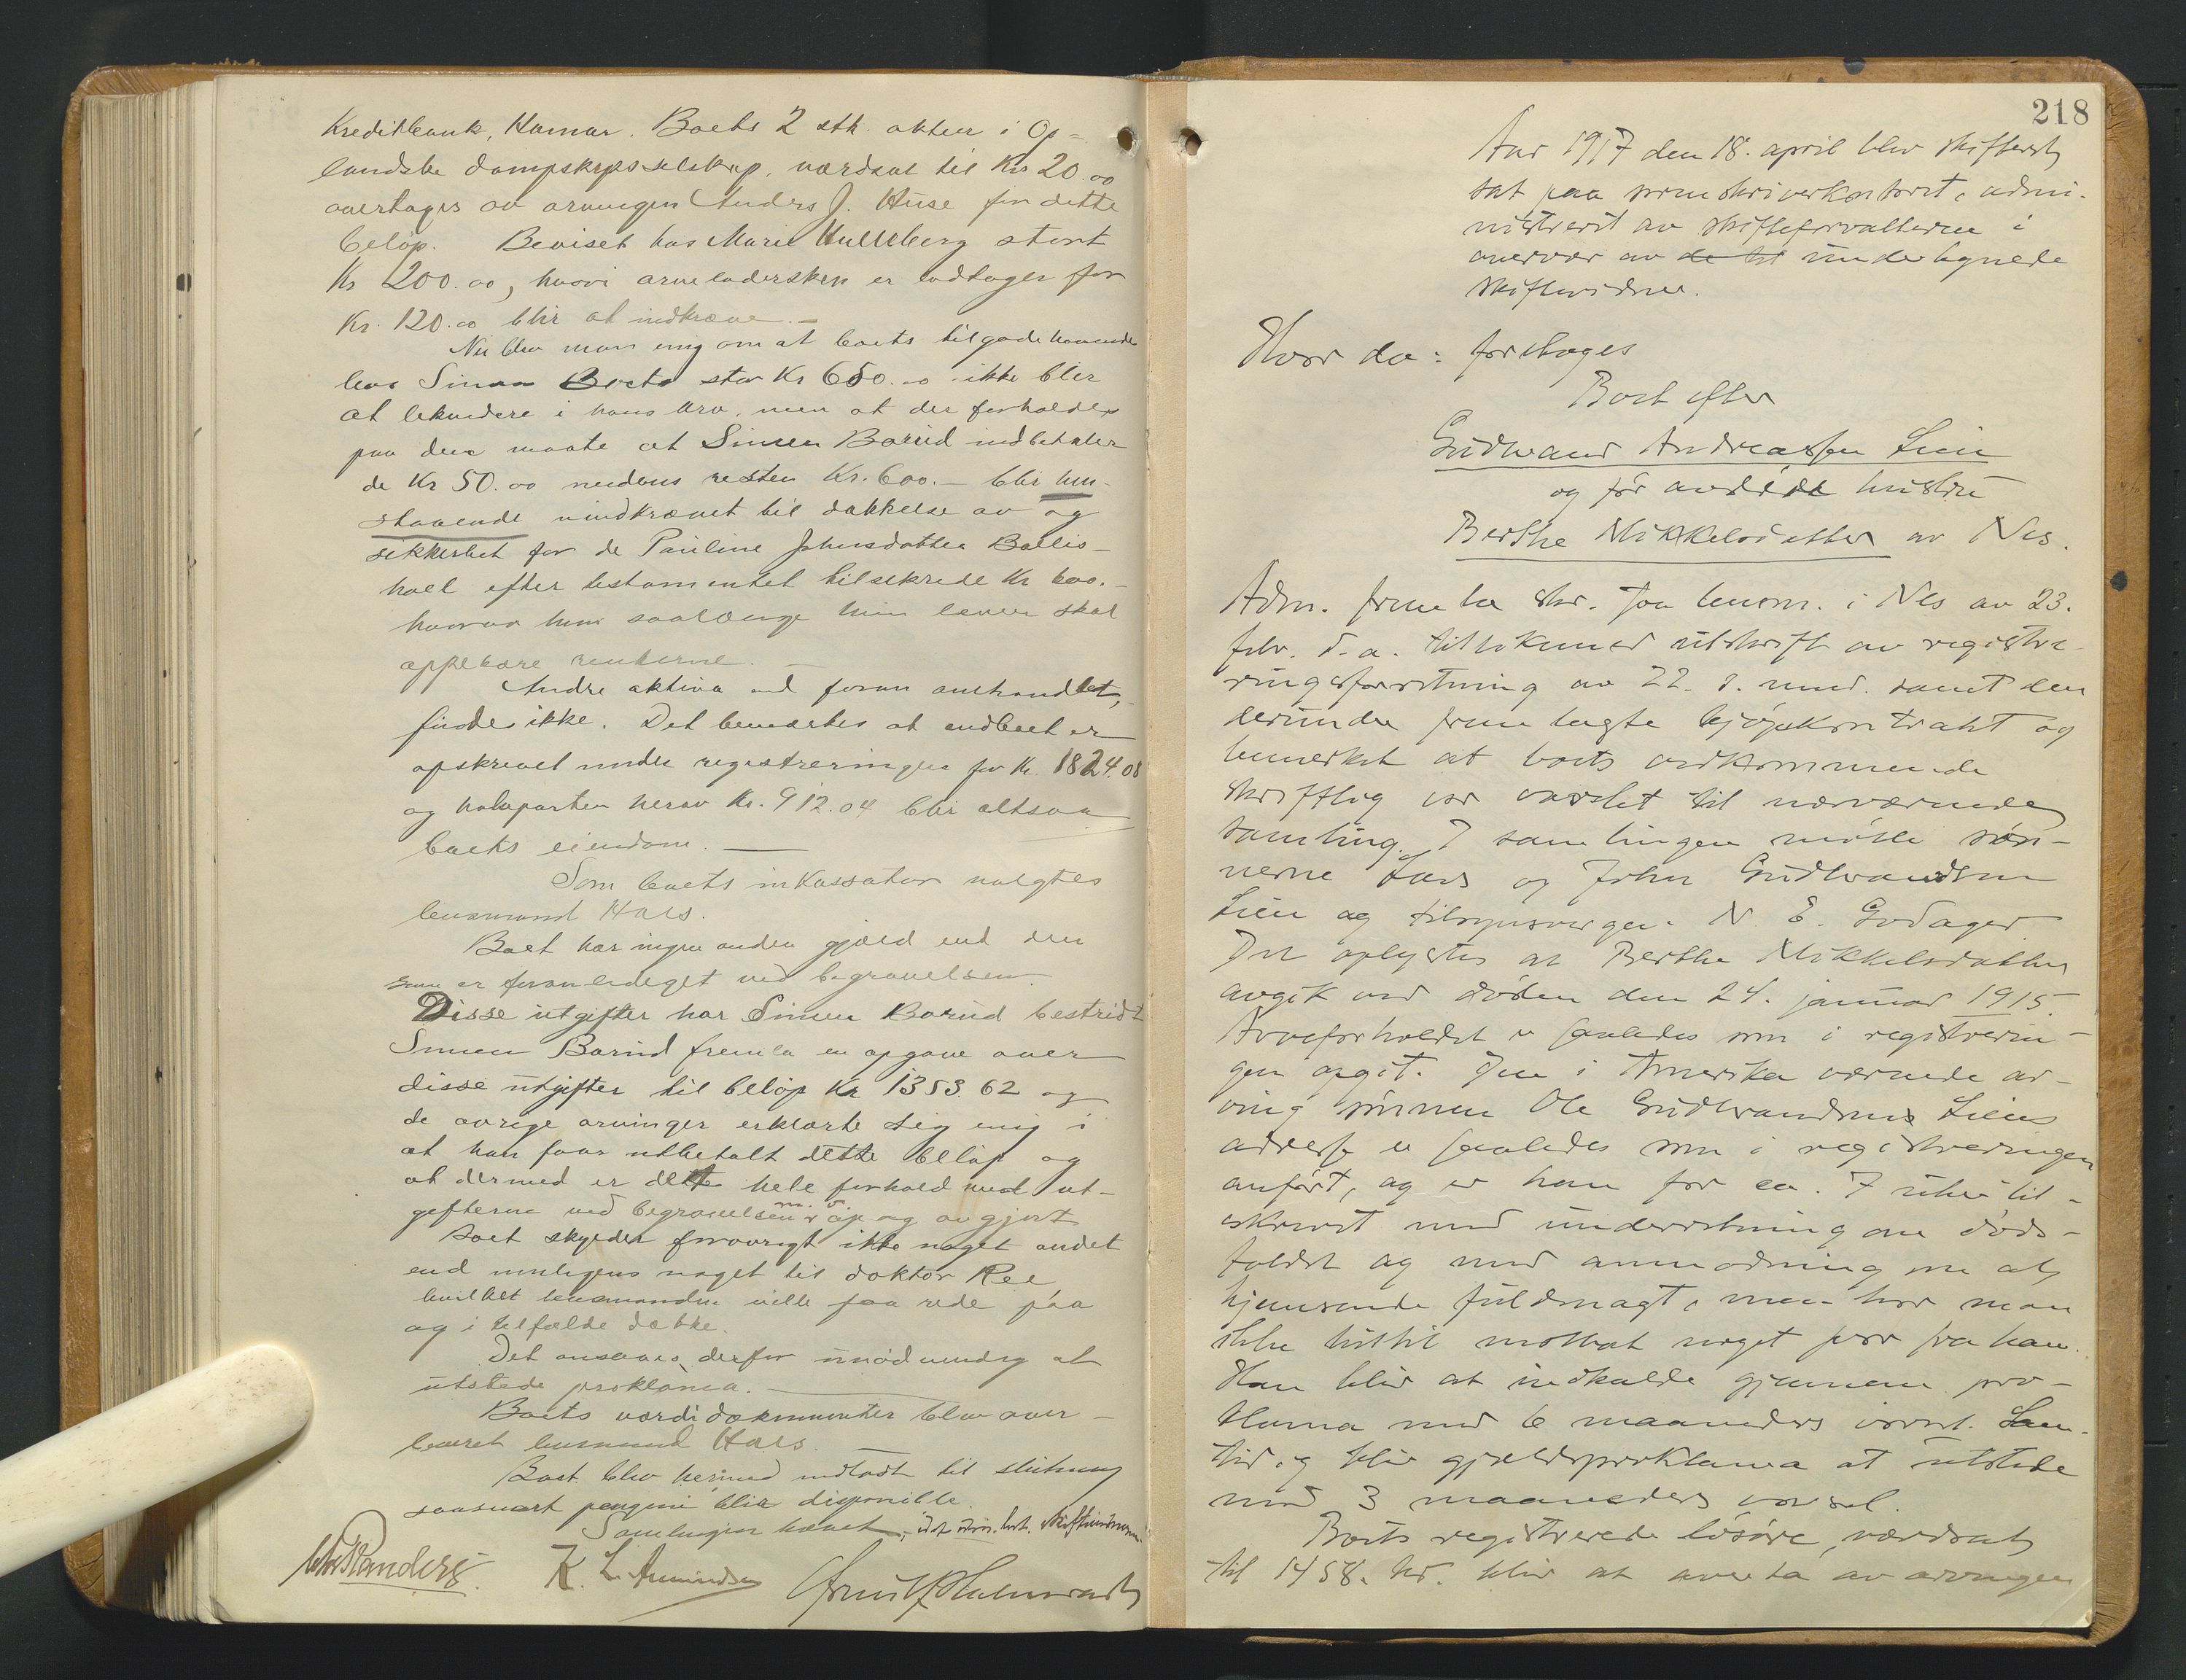 Kreditbank, Hamar. Boets 2 stk. aktier i Op-
landske dampskipsselskap, værdsat til Kr 20.00
overtages av arvingen Anders J. Huse for dette
beløp. Beviset hos Marie Hullberg stort
Kr 200.00, hvori arveladersken er lodtager for
Kr. 120.00 blir at indkræve. —
Nu blev man enig om at boets tilgodehavende
hos Simen Borud stor Kr 650.00 ikke blir
at likvidere i hans arv, men at der forholdes
paa den maate at Simen Borud indbetaler
de Kr 50.00 medens resten Kr. 600.— blir hen-
staaende uindkrævet til dækkelse av og
sikkerhet for de Pauline Johnsdatter Bollis-
hoel efter testamentet tilsikrede Kr 600.—
hvorav hun saalænge hun lever skal
oppebære renterne. —
Andre aktiva end foran omhandlet,
findes ikke. Det bemerkes at indboet er
opskrevet under registreringen for Kr. 1824.08
og halvparten herav Kr. 912.04 blir altsaa
boets eiendom. —
Som boets inkassator valgtes
lensmand Hals.
Boet har ingen anden gjæld end den
som er foranlediget ved begravelsen.
Disse utgifter har Simen Borud bestridt
Simen Borud fremla en opgave over
disse utgifter til beløp Kr 1353.62 og
de øvrige arvinger erklærte sig enig i
at han faar utbetalt dette beløp og
at dermed er dette hele forhold med ut-
gifterne ved begravelsen m. v. op og avgjort
Boet skylder forøvrigt ikke noget andet
end muligens noget til doktor Ree
hvilket lensmanden vilde faa rede paa
og i tilfælde dække.
Det ansaaes derfor unødvendig at
utstede proklama. —
Boets værdidokumenter blev over-
leveret lensmand Hals.
Boet blev hermed indladt til slutning
saasnart pengene blir disponible.
Samlingen hævet,
K. L. Amundsen
218
Aar 1917 den 18. april blev skifteret
sat paa sorenskriverkontoret, admi-
nistrert av skifteforvalteren i
overvær av de to undertegnede
skiftevidner.
Hvor da: foretoges
Boet efter
Gudbrand Andreassen Lien
og før avdøde hustru
Berthe Mikkelsdatter av Nes.
Adm. fremla skr. fra lensm. i Nes av 23.
febr. d. a. tillikemed utskrift av registre-
ringsforretning av 22. s. mnd. samt den
derunder fremlagte kjøpekontrakt og
bemerket at boets vedkommende
skriftlig var varslet til nærværende
samling. I samlingen møtte søn-
nerne Lars og John Gudbrandsen
Lien og tilsynsverge N. E. Godager
Det oplystes at Berthe Mikkelsdatter
avgik ved døden den 24. januar 1915.
Arveforholdet er saaledes som i registrerin-
gen opgit. Den i Amerika værende ar-
ving sønnen Ole Gudbrandsens Liens
adresse er saaledes som i registreringen
anført, og er han for ca. 7 uker til-
skrevet med underretning om døds-
faldet og med anmodning om at
hjemsende fuldmagt, men har man
ikke hittil mottat noget svar fra ham.
Han blir at indkalde gjennem pro-
klama med 6 maaneders varsel. Sam-
tidig blir gjældsproklama at utstede
med 3 maaneders varsel.
Boets registrerede løsøre, værdsat
til 1458. kr. blir at overta av arvingen